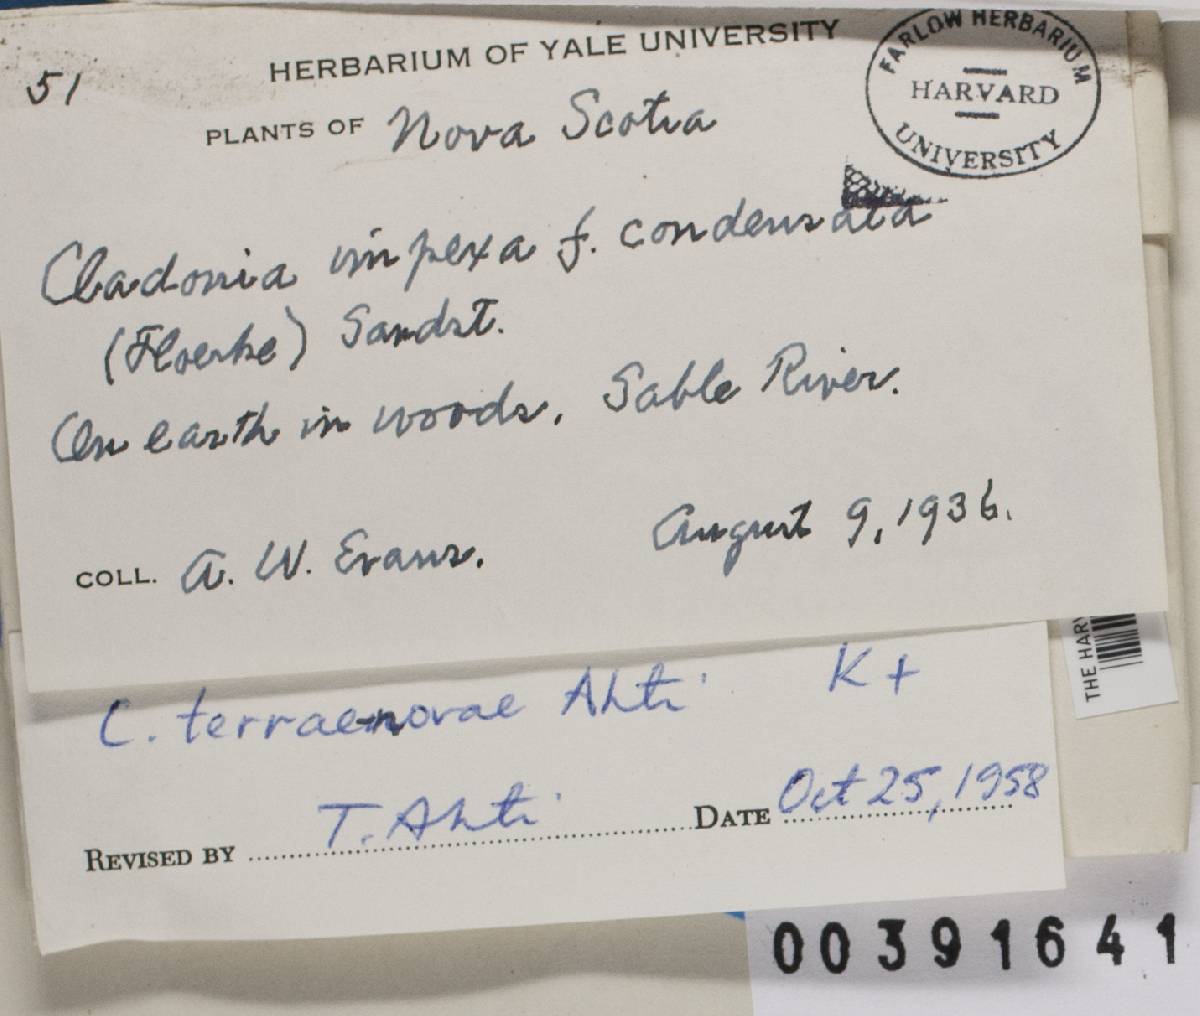 51
HERBARIUM OF YALE UNIVERSITY
FARLOW HERBARIUM
HARVARD
UNIVERSITY
PLANTS OF Nova Scotia
Cladonia impexa f. condensata
(Floerke) Sandst.
On earth in woods, Sable River.
COLL. A. W. Evans. August 9, 1936.
THE HARV
C. terraenovae Ahti K+
REVISED BY T. Ahti DATE Oct 25, 1958
00391641